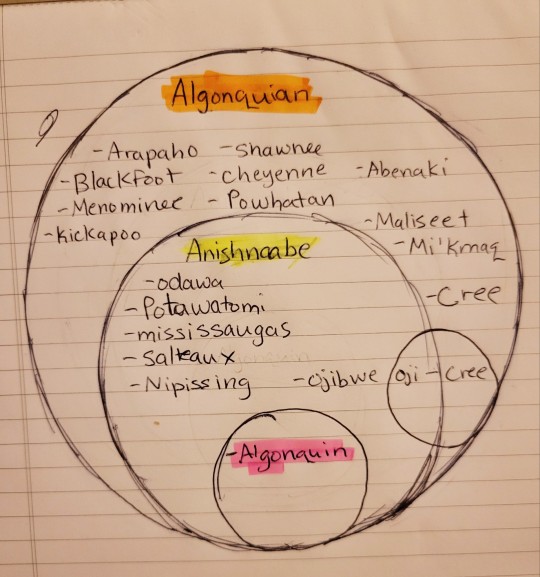 Algonquian
-Arapaho -Shawnee
-Blackfoot -cheyenne -Abenaki
-Menominee - Powhatan
-Kickapoo
-Maliseet
-Mi'kmaq
-Cree
Anishnaabe
-odawa
-Potawatomi
-mississaugas
-Salteaux
-Nipissing -ojibwe
oji-cree
-Algonquin